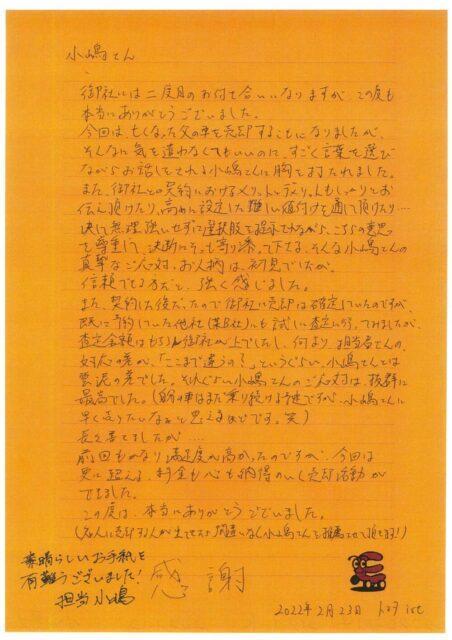 小嶋さん
御社には二度目のお付き合いになりますが、この度も
本当にありがとうございました。
今回は、亡くなった父の車を売却することになりましたが、
そんなに気を遣わなくてもいいのに、すごく言葉を選び
ながらお話をしてくれる小嶋さんに胸を打たれました。
また、御社との契約におけるメリット、デメリットもしっかりとお
伝え頂けたり、高めに設定した難しい値付けを通して頂けたり…
決して無理強いせずに選択肢を提示されながら、こちらの意思
を尊重して、決断にそっと寄り添って下さる、そんな小嶋さんの
真摯なご応対、お人柄は、初見でしたが、
信頼できる方だと、強く感じました。
また、契約した後だったので御社に売却は確定していたのですが、
既に予約していた他社(某B社)にも試しに査定に行ってみましたが、
査定金額はもちろん御社が上でしたし、何より、担当者さんの
対応の差が、「ここまで違うの?」というぐらい、小嶋さんとは
雲泥の差でした。そのぐらい小嶋さんのご応対は、抜群に
最高でした。(
の車はまだ乗り続ける予定ですが、小嶋さんに
早く売りたいなぁと思えるほどです。笑)
長々書きましたが…
前回もかなり満足度が高かったのですが、今回は
更に超える、料金も心も納得のいく売却活動が
できました。
この度は、本当にありがとうございました。
(知人に売却する人が出てきたら間違いなく小嶋さんを推薦させて頂きます!)
感謝
素晴らしいお手紙を
有難うございました!
担当小嶋
2022年2月23日